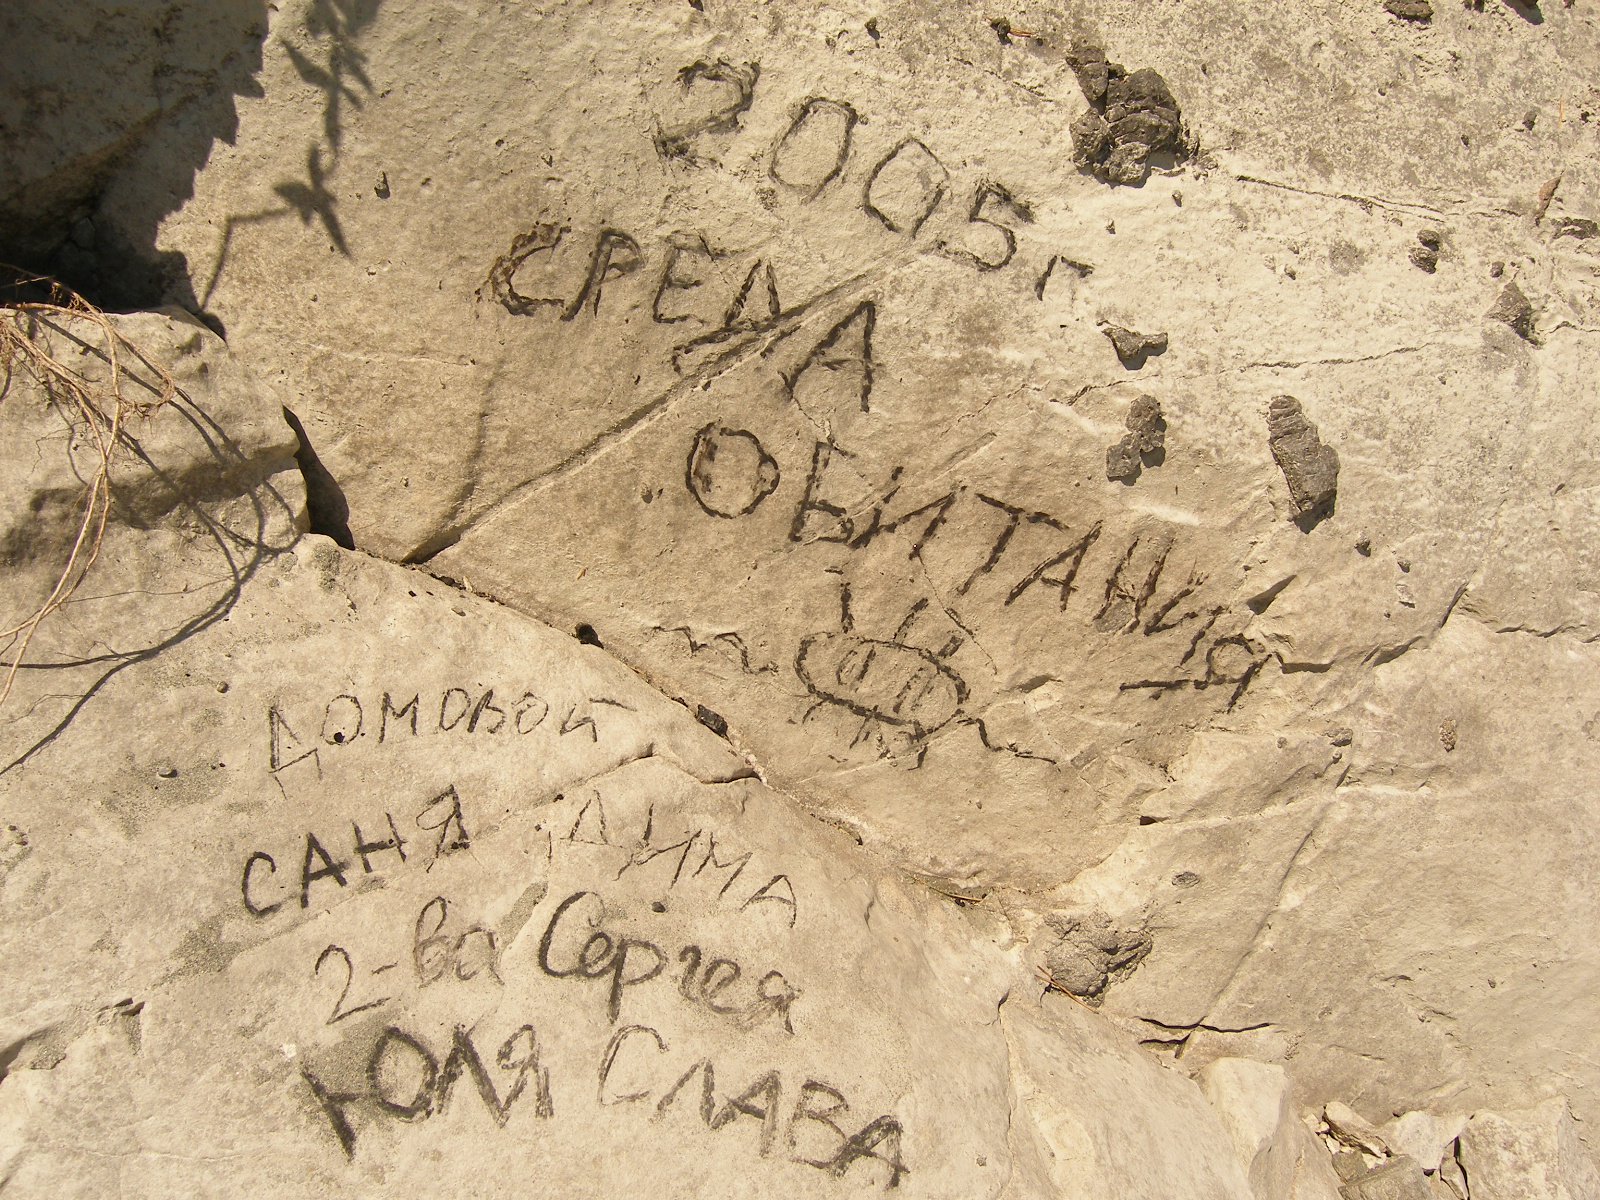 2005г
СРЕДА
ОБИТАНИЯ
ДОМОВОЙ
САНЯ ДИМА
2-ва Сергея
ЮЛЯ СЛАВА